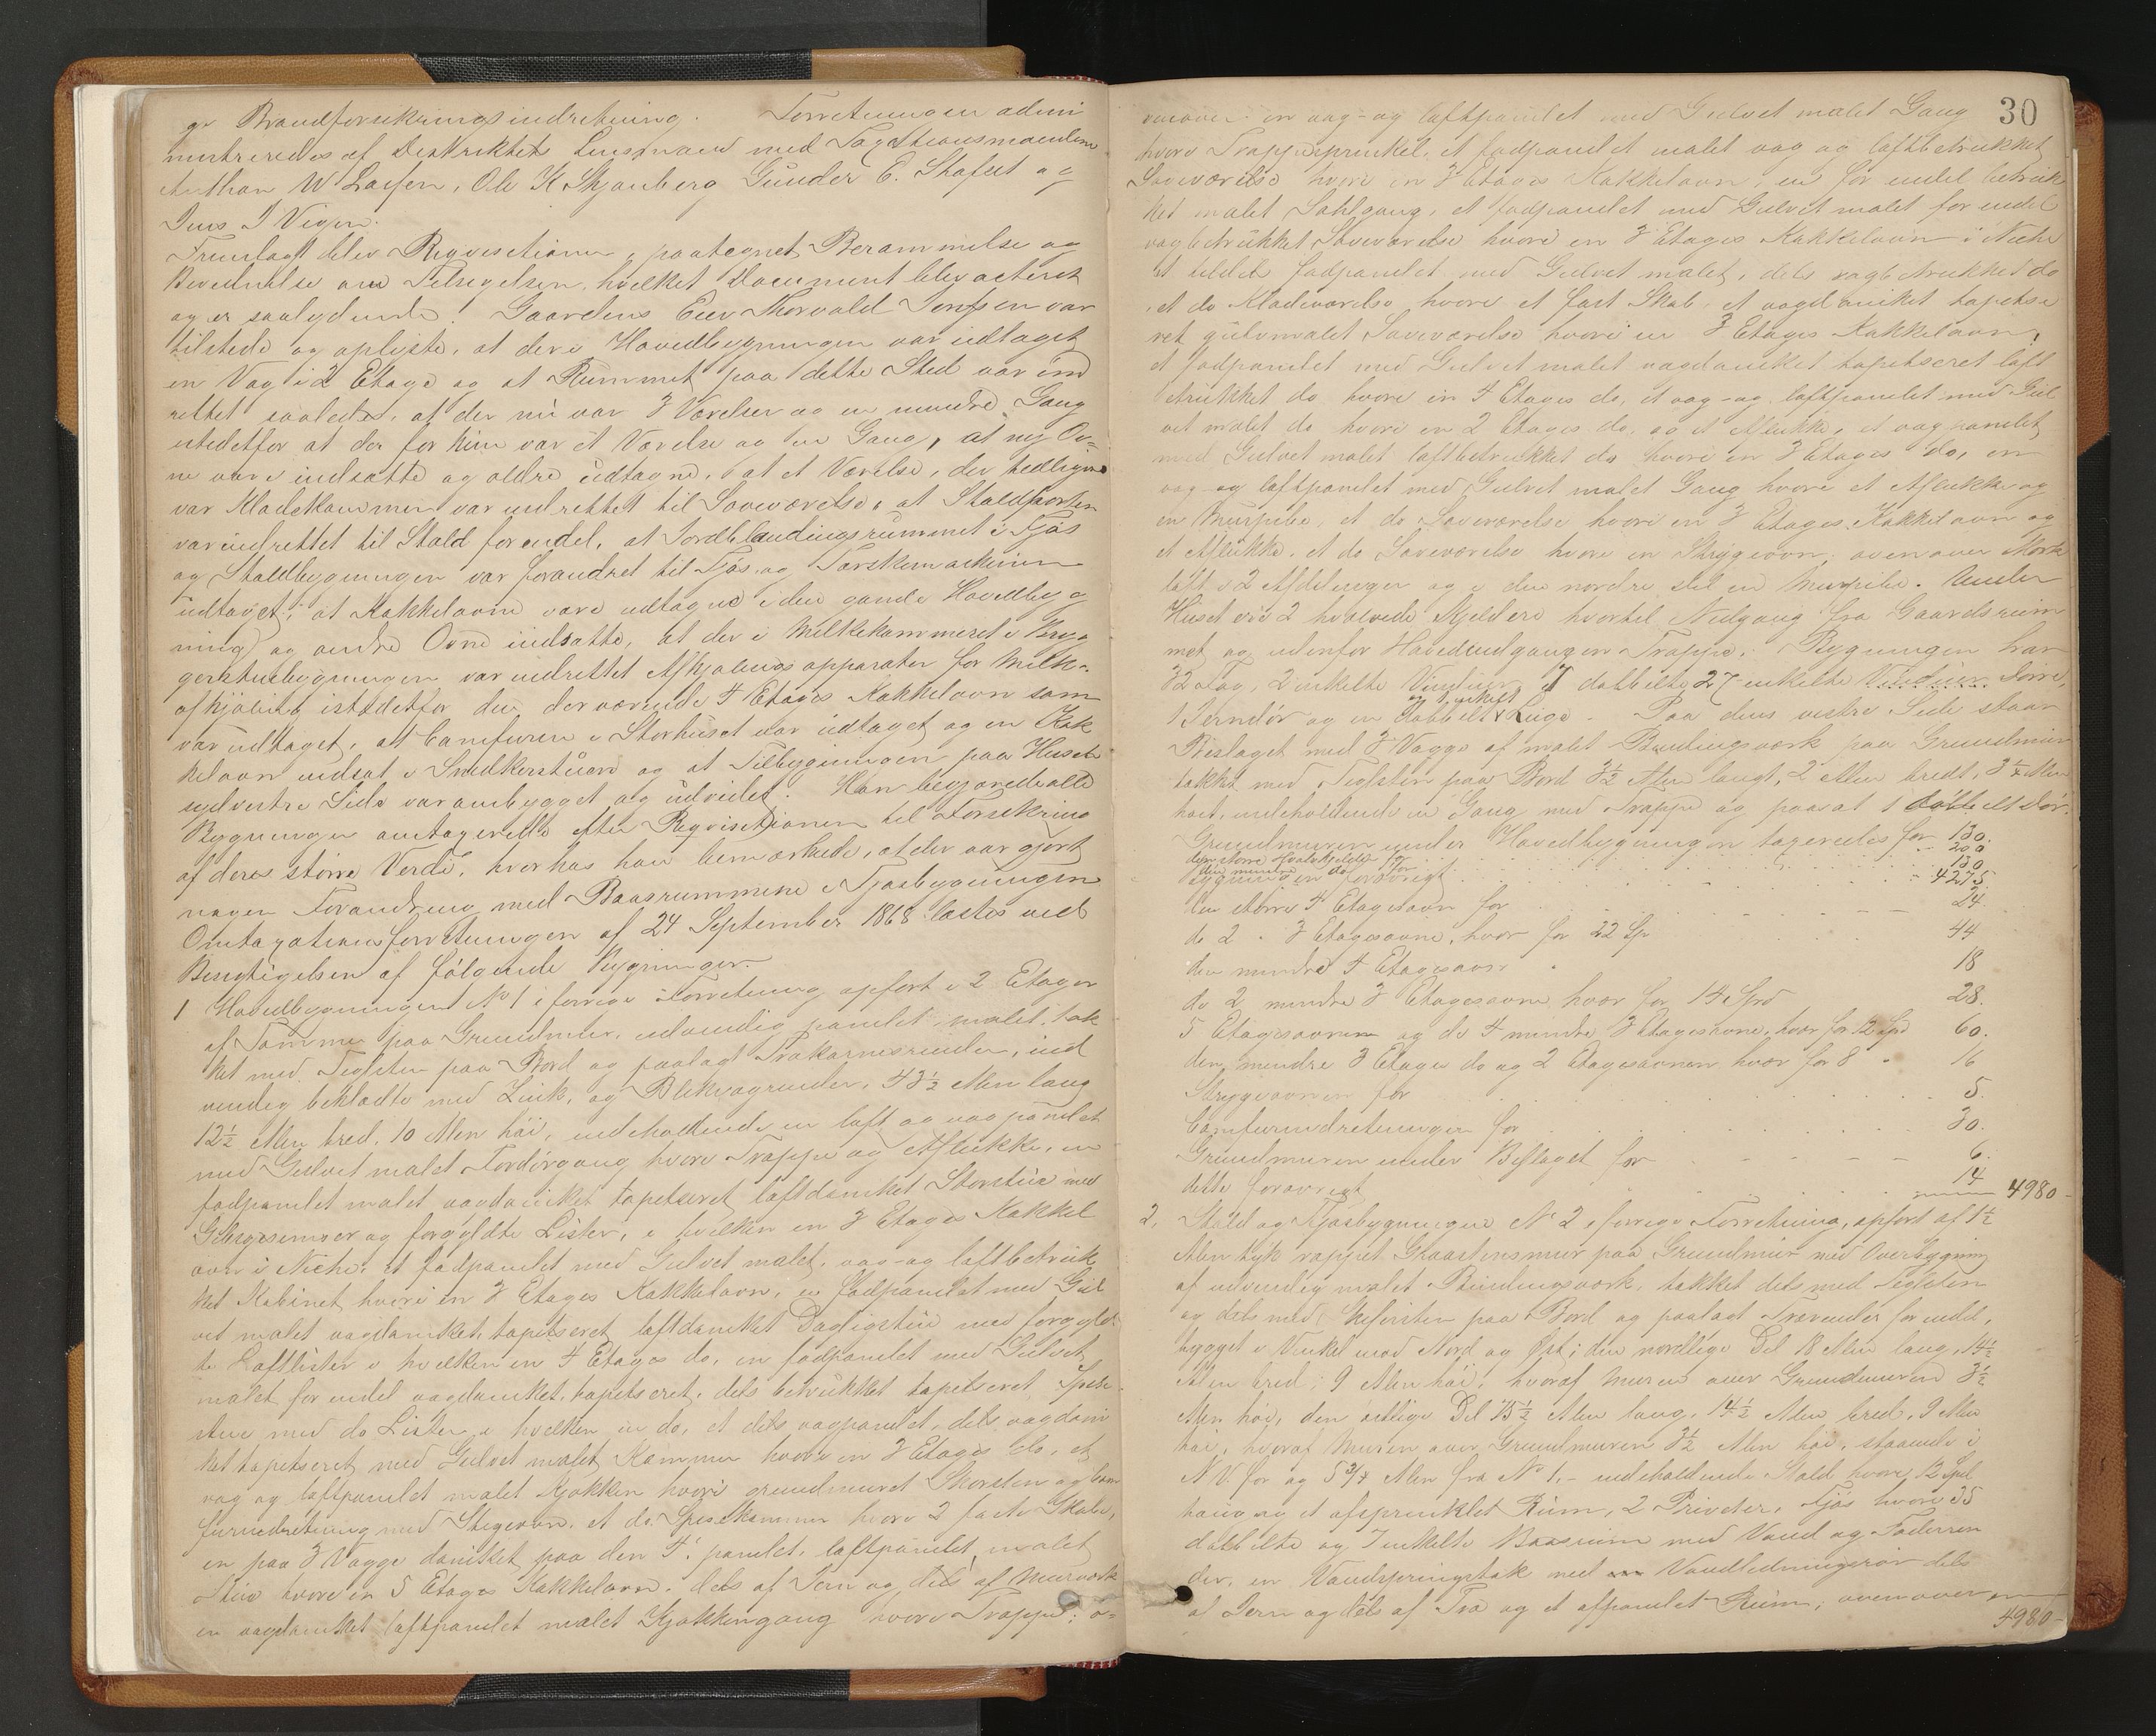 ge Brandforsikringsindretning. Forretningen admi
nistreredes af Distriktets Lensmand med Taxationsmændene
Anthon W Larsen, Ole K Skjønberg Gunder E. Skafset og
Jens J Vigen.
Fremlagt blev Reqvisitionen, paategnet Berammelse og
Bevidnelse om Tilsigelsen, hvilket Document blev acteret
og er saalydende! Gaardens Eier Thorvald Jensen var
tilstede og oplyste, at der i Hovedbygningen var udtaget
en Væg i 2 Etage og at Rummet paa dette Sted var ind
rettet saaledes, at der nu var 3 Værelser og en mindre Gang
istedetfor at der før kun var et Værelse og en Gang, at nye Ov=
ne vare indsatte og ældre udtagne, at et Værelse, der tidligere
var Klædekammer var indrettet til Soveværelse, at Staldporten
var indrettet til Stald for endel, at Fordblandingsrummet i Fjøs
og Staldbygningen var forandret til Fjøs og Tærskemaskinen
udtaget, at Kakkelovne vare udtagne i den gamle Hovedbyg
ning og andre Ovne indsatte, at der i Melkekammeret i Bryg
gerstuebygningen var indrettet Afkjølings apparater for Melk-
afkjøling istedetfor den derværende 4 Etages Kakkelovn som
var udtaget, at Comfuren i Storhuset var udtaget og en Kak
kelovn indsat i Snedkerstuen og at Tilbygningen paa Husets
sydvestre Side var ombygget og udvidet. Han begjærede alle
Bygninger omtaxerede efter Reqvisitionen til Forsikring
af deres større Verdi, hvorhos han bemærkede, at der var gjort
nogen Forandring med Baasrummene i Fjøsbygningen
Omtaxationsforretningen af 24 September 1868 læstes ved
Besigtigelsen af følgende Bygninger.
1 Hovedbygningen No 1 i forrige Forretning opført i 2 Etager
af Tømmer paa Grundmur, udvendig panelet, malet, tæk
ket med Teglsten paa Bord og paalagt Trækarnisrender, ind
vendig beklædte med Zink, og Blikvagrender, 43½ Alen lang
12½ Alen bred, 10 Alen høi, indeholdende en loft og vægpanelet
med Gulvet malet Fordørgang hvori Trappe og Aflukke, en
fodpanelet malet vægdamket tapetseret loftdamket Storstue med
Gibsgesimser og forgyldte Lister, i hvilken en 3 Etages Kakkel
ovn i Niche, et fodpanelet med Gulvet malet, væg-og loftbetruk
ket Kabinet hvori en 3 Etages Kakkelovn, en fodpanelet med Gul
vet malet vægdamket, tapetseret loftdamket Dagligstue med forgyld-
te Loftlister i hvilken en 4 Etages do, en fodpanelet med Gulvet
malet for endel vægdamket, tapetseret, dels betrukket tapetseret Spise
stue med do Lister i hvilken en do, et dels vægpanelet, dels vægdam
ket tapetseret med Gulvet malet Kammer hvori en 3 Etages do, et
væg og loftpanelet malet Kjøkken hvori grundmuret Skorsten og Com
furindretning med Stegeovn, et do Spisekammer hvori 2 faste Skabe,
en paa 3 Vægge damket paa den 4. panelet, loftpanelet, malet
Stue hvori en 5 Etages Kakkelovn, dels af Jern og dels af Murværk
en vægdamket loftpanelet malet Kjøkkengang hvori Trappe; o=
30
venover en væg-og loftpanelet med Gulvet malet Gang
hvori Trappesprinkel, et fodpanelet malet væg og loftbetrukket
Soveværelse hvori en 3 Etages Kakkelovn, en for endel betruk
ket malet Sahlgang, et fodpanelet med Gulvet malet for endel
vægbetrukket Soveværelse hvori en 3 Etages Kakkelovn i Niche
et dels fodpanelet med Gulvet malet, dels vægbetrukket do
, et do Klædeværelse hvori et fast Skab, et vægdamket tapetse
ret gulvmalet Soveværelse hvori en 3 Etages Kakkelovn,
et fodpanelet med Gulvet malet vægdamket tapetseret loft
betrukket do hvori en 4 Etages do, et væg-og loftpanelet med Gul
vet malet do hvori en 2 Etages do, og et Aflukke, et vægpanelet
med Gulvet malet loftbetrukket do hvori en 3 Etages do, en
væg-og loftpanelet med Gulvet malet Gang hvori et Aflukke og
en Murpibe, et do Soveværelse hvori en 3 Etages Kakkelovn og
et Aflukke, et do Soveværelse hvori en Strygeovn, ovenover Mørk
loft i 2 Afdelinger og i den nordre Del en Murpibe. Under
Huset er 2 hvælvede Kjeldere hvortil Nedgang fra Gaardsrum
met og udenfor Hovedindgangen Trappe. Bygningen har
32 Fag, 2 enkelte Vinduer, 7 dobbelte 27 enkelte Vinduer Dørre,
1 Jerndør og en dobbelt og enkelt Luge. Paa dens vestre Side staar
Bislaget med 3 Vægge af malet Bindingsværk paa Grundmur
tækket med Teglsten paa Bord 3½ Alen langt, 2 Alen bredt, 3¼ Alen
høit, indeholdende en Gang med Trappe og paasat 1 dobbelt Dør.
Grundmuren under Hovedbygningen taxeredes for 130.
den større Hvælvkjelder for 200
den mindre do for 130
Bygningen forøvrigt 4275.
den større 4 Etagesovn for 24.
de 2 " 3 Etagesovne, hver for 22 Sp 44
den mindre 4 Etagesovn " 18
de 2 mindre 3 Etagesovne hver for 14 Spd 28.
5 Etagesovnen og de 4 mindre 3 Etagesovne, hver for 12 Spd 60.
den mindre 3 Etages do og 2 Etagesovnen hver for 8 " 16
Strygeovnen for 5.
Comfurindretningen for 30.
Grundmuren under Bislaget for 6.
dette forøvrigt 14 4980-
2. Stald og Fjøsbygningen No 2 i forrige Forretning, opført af 1½
Alen tyk rappet Graastensmur paa Grundmur med Overbygning
af udvendig malet Bindingsværk, tækket dels med Teglsten
og dels med Skifersten paa Bord og paalagt Trærender for endel,
bygget i Vinkel mod Nord og Øst; den nordlige Del 18 Alen lang, 14½
Alen bred, 9 Alen høi, hvoraf Muren over Grundmuren 3½
Alen høi, den østlige Del 75½ Alen lang, 14½ Alen bred, 9 Alen
høi, hvoraf Muren over Grundmuren 3½ Alen høi, staaende i
N.V. for og 5¾ Alen fra No 1.- indeholdende Stald hvori 12 Spil
taug og et afsprinklet Rum, 2 Priveter, Fjøs hvori 35
dobbelte og 7 enkelte Baasrum med Vand og Foderren
der, en Vandspringstak med Vandledningsrør dels
af Jern og dels af Træ og et afpanelet Rum, ovenover en
4980-